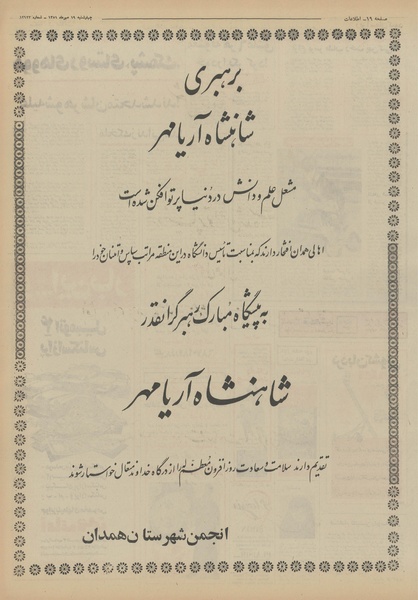 صفحه ۱۹ - اطلاعات
برهبری
شاهنشاه آریامهر
مشعل علم و دانش در دنیا پرتو افکن شده است
اهالی همدان افتخار دارند که بمناسبت تأسیس دانشگاه در این منطقه مراتب سپاس و امتنان خود را
به پیشگاه مبارک رهبر گرانقدر
شاهنشاه آریامهر
تقدیم دارند سلامت و سعادت روز افزون معظم له را از درگاه خداوند متعال خواستار شوند
انجمن شهرستان همدان